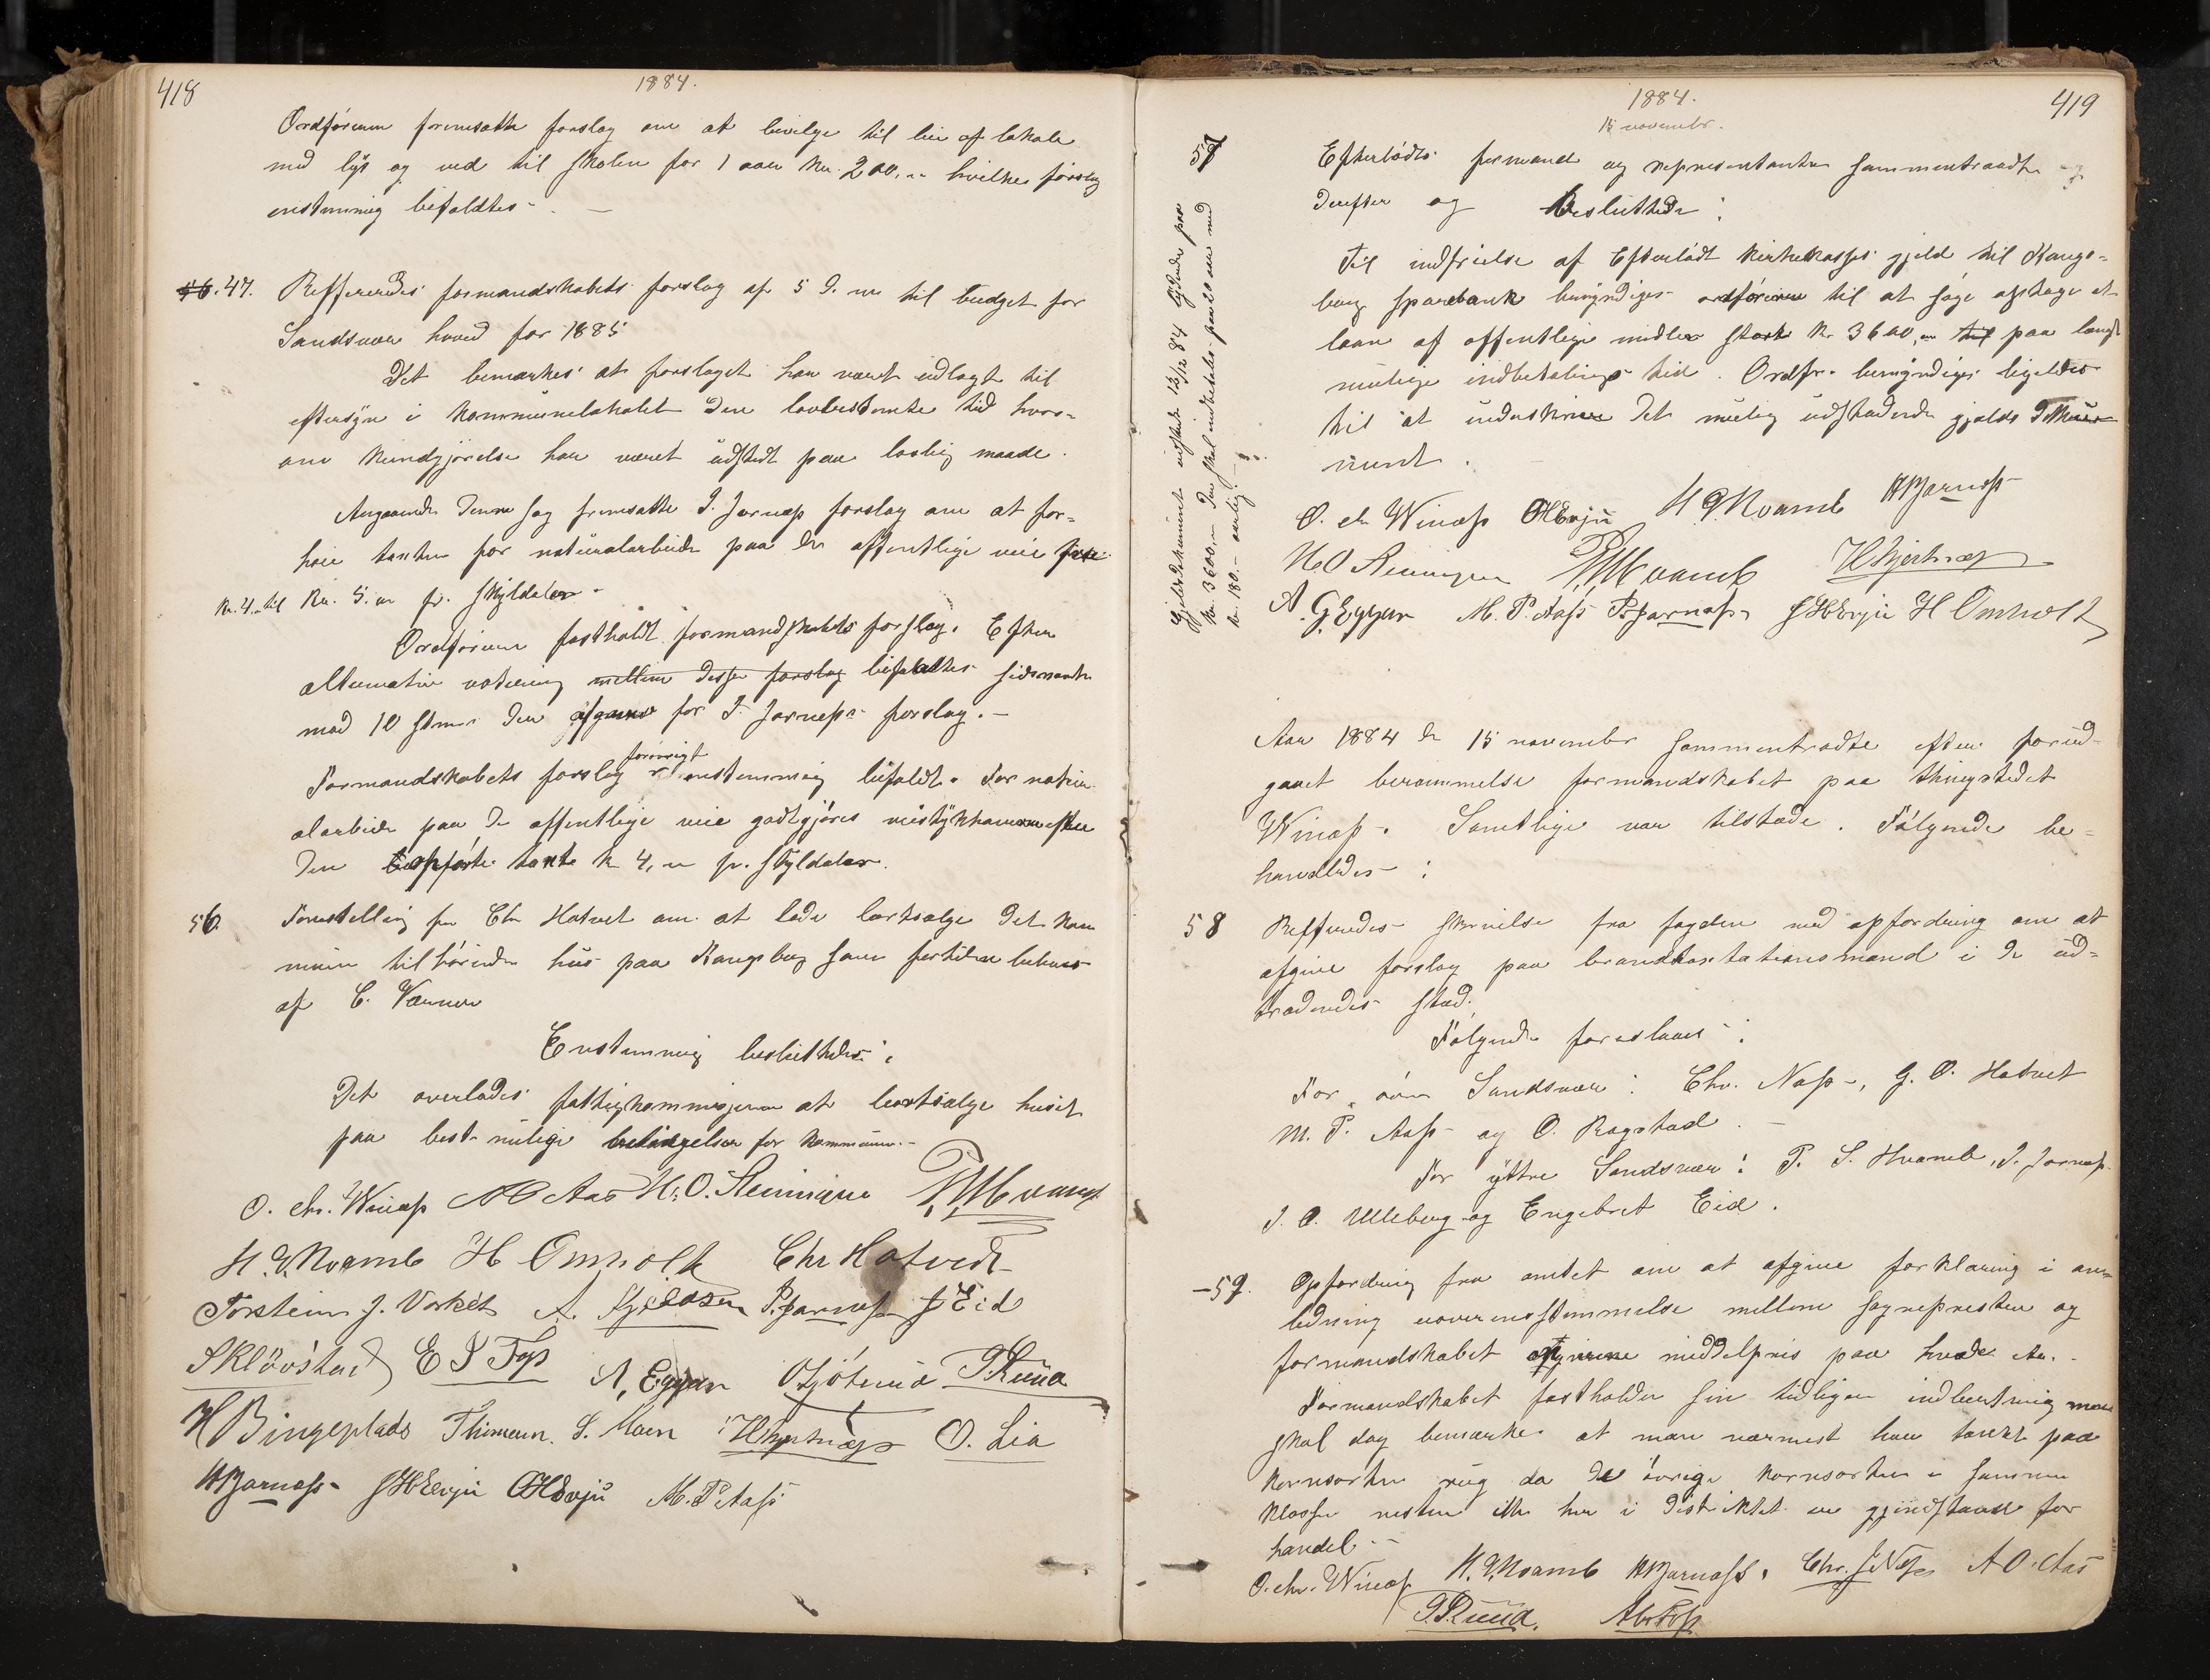 418
1884.
Ordføreren fremsatte forslag om at bevilge til leie af lokale
med lys og ved til skolen for 1 aar Kr. 200,00 hvilket forslag
enstemmig bifaldtes. —
56. 47. Refereredes formandskabets forslag af 5 d. m. til budget for
Sandsvær hoved for 1885
Det bemærkes at forslaget har været udlagt til
eftersyn i kommunelokalet den lovbestemte tid hvor-
om kundgjørelse har været udstedt paa lovlig maade.
Angaaende denne sag fremsatte P. Jarnæs forslag om at for-
høie taxten for naturalarbeide paa de offentlige veie fra
Kr. 4. til Kr. 5. pr. skylddaler.
Ordføreren fastholdt formandskabets forslag. Efter
alternativ votering mellem disse forslag bifaldtes sidstnævnte
mod 10 stemmer der afgaves for P. Jarnæs's forslag. —
Formandskabets forslag forøvrigt enstemmig bifaldt. For natur-
alarbeide paa de offentlige veie godtgjøres veistykkerne efter
den opførte taxt kr 4, pr. skylddaler.
56. Forestilling fra Chr Hotvet om at lade bortsælge det kom-
munen tilhørende hus paa Kongsberg som fortiden beboes
af C. Værner
Enstemmig besluttedes:
Det overlades fattigkommisjonen at bortsælge huset
paa best mulige betingelser for kommunen. —
O. Chr. Winæss A O Aas H. O. Steiningen P. S. Hvamb
H. P. Hvamb H Omholt Chr Hotvedt
Torstein J. Vorket A. Kjeldsen P. Jarnæss J Eid
S Kløvstad E S Foss A. G. Eggar O Gjøterud P. Ruud
H Bingeplads Thimann. S. Moen H Hjertnæss O. Lia
H Bjarnæss J H Evju O H Evju M. P. Aass
1884.
15 novembr.
419
57 Efterlødts formænd og repræsentanter sammentraadte
derefter og Besluttede:
Til indfrielse af Efterlødt kirkekasses gjeld til Kongs-
berg sparebank bemyndiges ordføreren til at søge optage et
laan af offentlige midler stort kr. 3600, til paa længst
mulige indbetalings tid. Ordfr. bemyndiges ligeledes
til at underskrive det mulig udstedende gjelds doku-
ment.
Gjeldsdokument udstedt 13/12 84 lydende paa
kr. 3600,– Der skal indbetales paa laanet med
kr. 180.– aarlig. –
O. Chr Winæss O H Evju H. P. Hvamb H Bjarnæss
H. O Steiningen P. S. Hvamb H Hjertnæss
A. G. Eggar M. P. Aass P. Jarnæss J H Evju H Omholt
Aar 1884 de 15 november sammentraadte efter forud-
gaaet berammelse formandskabet paa thingstedet
Winæss. Samtlige var tilstede. Følgende be-
handledes:
58 Refferedes skrivelse fra fogden med opfordring om at
afgive forslag paa brandtaxtationsmænd i de ud-
trædendes sted.
Følgende foresloges:
For øvre Sandsvær: Chr. Næss, G. O. Hotvet
M. P. Aass og O. Rogstad. —
For yttre Sandsvær: P. S. Hvamb, P. Jarnæss
J. O. Ulleberg og Engebret Eid.
59. Opfordring fra amtet om at afgive forklaring i an-
ledning uoverensstemmelse mellem sognepresten og
formandskabet angivne middelpris paa hvede &c.
Formandskabet fastholder sin tidligere indberetning man
skal dog bemærke at man nærmest har tænkt paa
kornsorten rug da de øvrige kornsorter i samme
klasse næsten ikke her i distriktet er gjenstand for
handel. –
O. Chr. Winæss H. P. Hvamb H Bjarnæss. Chr. S. Næss A O. Aas
P. Ruud. Abr Foss